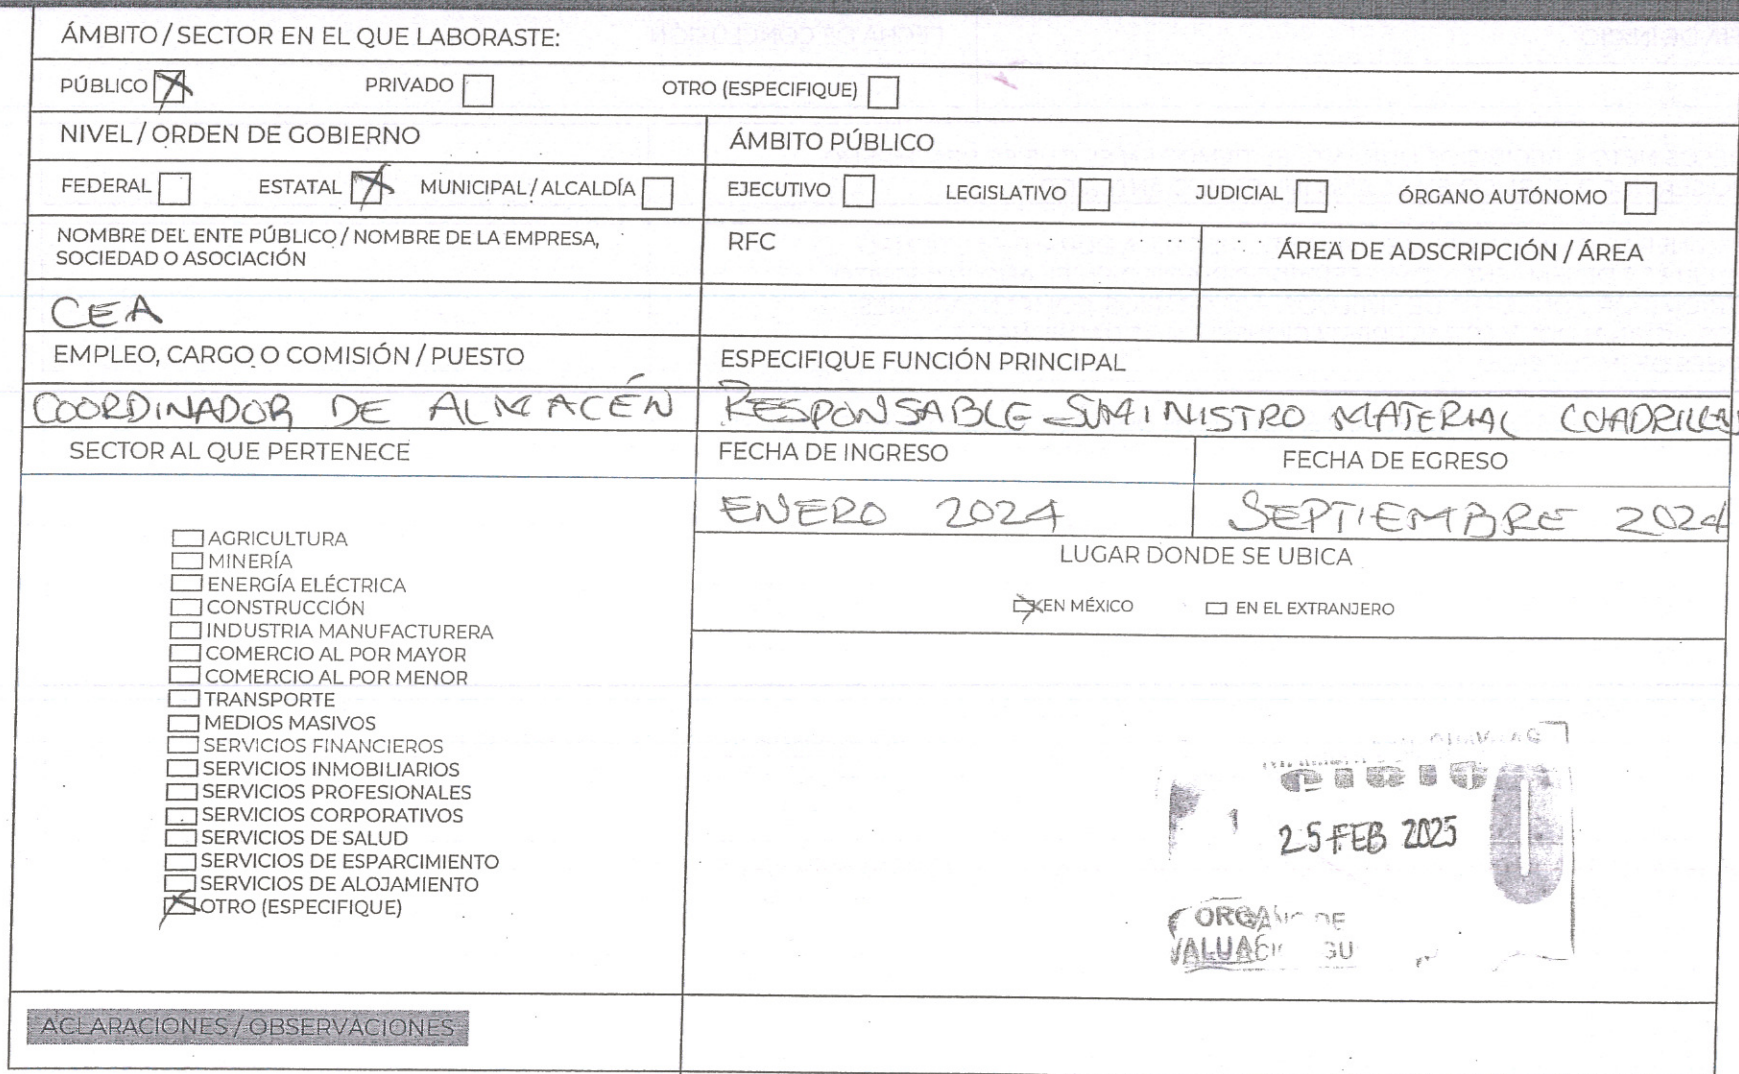 ÁMBITO / SECTOR EN EL QUE LABORASTE:
PÚBLICO PRIVADO OTRO (ESPECIFIQUE)
NIVEL / ORDEN DE GOBIERNO ÁMBITO PÚBLICO
FEDERAL ESTATAL MUNICIPAL / ALCALDÍA EJECUTIVO LEGISLATIVO JUDICIAL ÓRGANO AUTÓNOMO
NOMBRE DEL ENTE PÚBLICO / NOMBRE DE LA EMPRESA,
SOCIEDAD O ASOCIACIÓN
RFC ÁREA DE ADSCRIPCIÓN / ÁREA
CEA
EMPLEO, CARGO O COMISIÓN / PUESTO ESPECIFIQUE FUNCIÓN PRINCIPAL
COORDINADOR DE ALMACÉN RESPONSABLE SUMINISTRO MATERIAL
SECTOR AL QUE PERTENECE FECHA DE INGRESO FECHA DE EGRESO
ENERO 2024 SEPTIEMBRE 2024
LUGAR DONDE SE UBICA
EN MÉXICO EN EL EXTRANJERO
AGRICULTURA
MINERÍA
ENERGÍA ELÉCTRICA
CONSTRUCCIÓN
INDUSTRIA MANUFACTURERA
COMERCIO AL POR MAYOR
COMERCIO AL POR MENOR
TRANSPORTE
MEDIOS MASIVOS
SERVICIOS FINANCIEROS
SERVICIOS INMOBILIARIOS
SERVICIOS PROFESIONALES
SERVICIOS CORPORATIVOS
SERVICIOS DE SALUD
SERVICIOS DE ESPARCIMIENTO
SERVICIOS DE ALOJAMIENTO
OTRO (ESPECIFIQUE)
25 FEB 2025
DE
ACLARACIONES / OBSERVACIONES